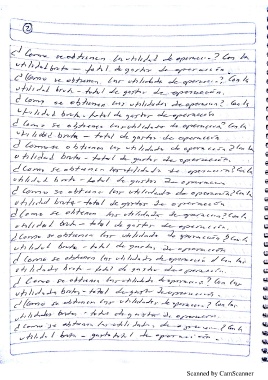 2
¿Como se obtienen la utilidad de operación? Con la
utilidad bruta - total de gastos de operación
¿Como se obtienen las utilidades de operación? Con la
utilidad bruta - total de gastos de operación.
¿Como se obtienen las utilidades de operación? Con la
utilidad bruta - total de gastos de operación
¿Como se obtienen las utilidades de operación? Con la
utilidad bruta - total de gastos de operación.
¿Como se obtienen las utilidad de operación? Con la
utilidad bruta - total de gastos de operación.
¿Como se obtienen las utilidad de operación? Con la
utilidad bruta - total de gastos de operación
¿Como se obtienen las utilidades de operación? Con la
utilidad bruta - total de gastos de operación
¿Como se obtienen las utilidades de operación? Con la
utilidad bruta - total de gastos de operación.
¿Como se obtienen las utilidades de operación? Con la
utilidad bruta - total de gastos de operación.
¿Como se obtienen las utilidades de operación? Con las
utilidades bruta - total de gastos de operación.
¿Como se obtienen las utilidades de operación? Con la
utilidad bruta - total de gastos de operación.
¿Como se obtienen las utilidades de operación? Con las
utilidades bruta - total de gastos de operación.
¿Como se obtienen las utilidades de operación? Con la
utilidad bruta - gasto total de operación.
Scanned by CamScanner